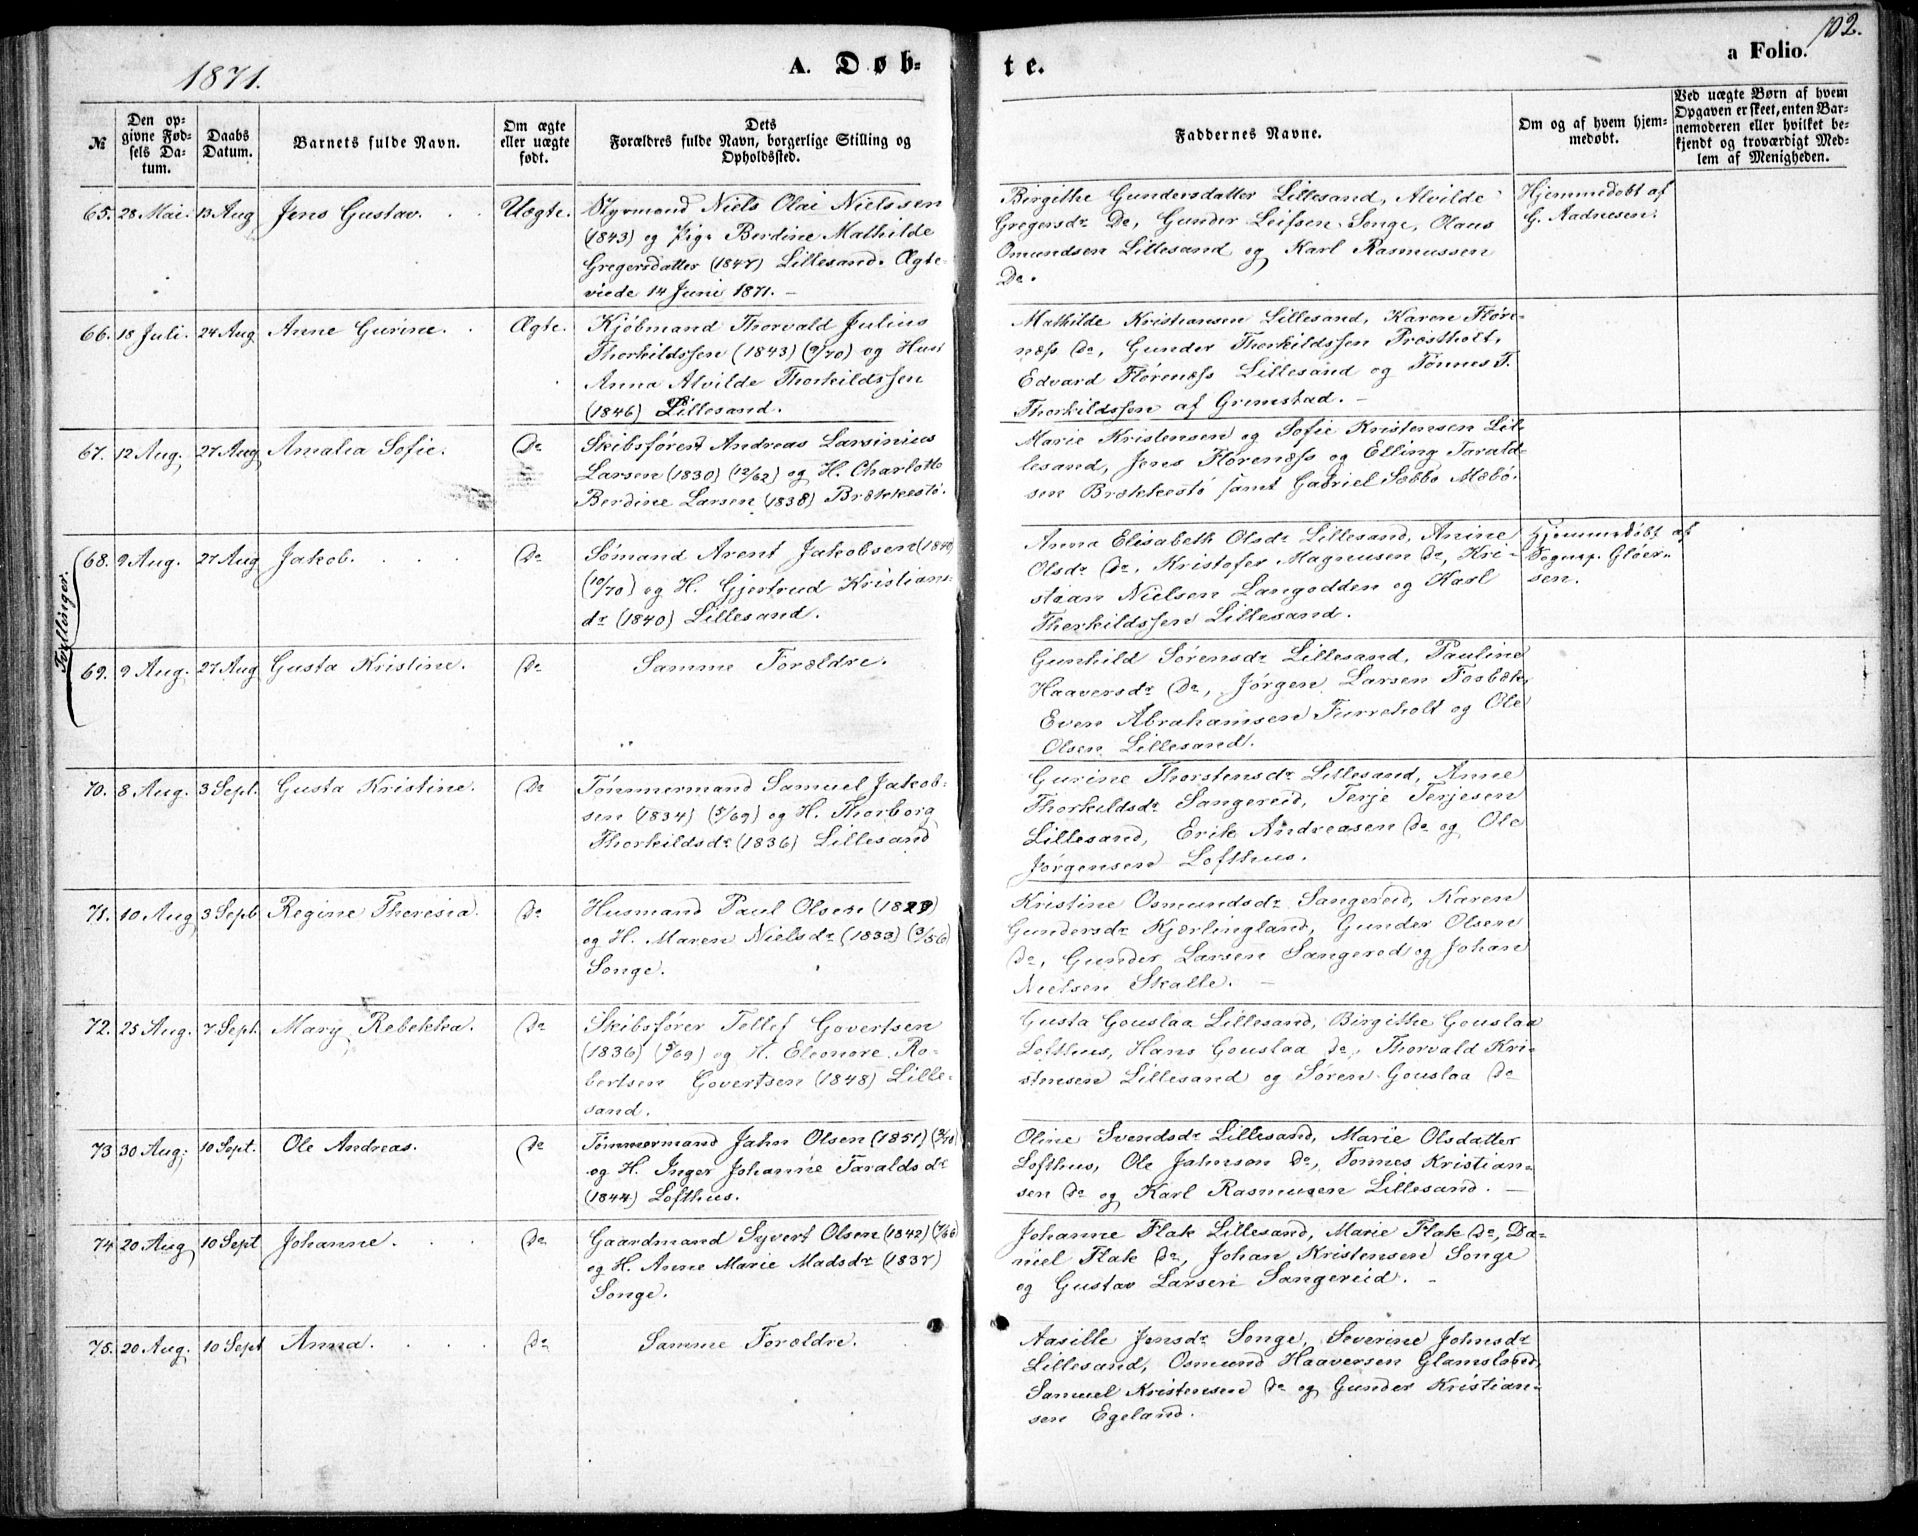 102.
1871.
A. Døb-
te.
a Folio.
№
Den op-
givne Fød-
sels Da-
tum.
Daabs
Datum.
Barnets fulde Navn.
Om ægte
eller uægte
født.
Dets
Forældres fulde Navn, borgerlige Stilling og
Opholdssted.
Faddernes Navne.
Om og af hvem hjem-
medøbt.
Ved uægte Børn af hvem
Opgaven er skeet, enten Bar-
nemoderen eller hvilket be-
kjendt og troværdigt Med-
lem af Menigheden.
65. 28 Mai. 13 Aug Jens Gustav. Uægte.
Styrmand Niels Olai Nielssen
(1843) og Pige Berdine Mathilde
Gregersdatter (1847) Lillesand. Ægte-
viede 14 Juni 1871. –
Birgithe Gundersdatter Lillesand, Alvilde
Gregersdr Do, Gunder Leifsen Songe, Olaus
Omundsen Lillesand og Karl Rasmussen
Do.
Hjemmedøbt af
G. Aadnesen.
66. 18 Juli. 24 Aug Anne Gurine. Ægte.
Kjøbmand Thorvald Julius
Thorkildssen (1843) (9/70) og Hust
Anna Alvilde Thorkildssen
(1846) Lillesand.
Mathilde Kristiansen Lillesand, Karen Fløre-
næss do, Gunder Thorkildssen Prestholt,
Edvard Flørenæss Lillesand og Tønnes T.
Thorkildssen af Grimstad. –
67. 12 Aug. 27 Aug Amalia Sofie. Do
Skibsfører Andreas Lavinius
Larsen (1830) (12/62) og H. Charlotte
Berdine Larsen (1838) Brækkestø.
Marie Kristensen og Sofie Kristensen Lil-
lesand, Jens Flørenæss og Elling Tarald-
sen Brækkestø samt Gabriel Sæbbø Mæbø.
Tvillinger.
68. 9 Aug. 27 Aug Jakob. Do
Sømand Arent Jakobsen (1840)
(10/70) og H. Gjertrud Kristians-
dr (1840) Lillesand.
Anna Elisabeth Olsdr Lillesand, Anine
Olsdr do, Kristofer Magnusen do, Kri-
staan Nielsen Langodden og Karl
Thorkildssen Lillesand.
Hjemmedøbt af
Sognep. Gløer-
sen.
69. 9 Aug. 27 Aug Gusta Kristine. Do
Samme Forældre.
Gunhild Sørensdr Lillesand, Pauline
Haaversdr do, Jørgen Larsen Fosbæk,
Even Abrahamsen Furreholt og Ole
Olsen Lillesand.
70. 8 Aug. 3 Sept. Gusta Kristine. Do
Tømmermand Samuel Jakob-
sen (1834) (5/69) og H. Thorborg
Thorkildsdr (1836) Lillesand
Gurine Thorstensdr Lillesand, Anne
Thorkildsdr Sangereid, Terje Terjesen
Lillesand, Erik Andreasen do og Ole
Jørgensen Lofthus.
71. 10 Aug 3 Sept Regine Theresia. Do
Husmand Paul Olsen
og H. Maren Nielsdr (1833) (3/56)
Songe.
Kristine Osmundsdr Sangereid, Karen
Gundersdr Kjærlingland, Gunder Olsen
do, Gunder Larsen Sangereid og Johan
Nielsen Skalle. –
72. 25 Aug. 7 Sept. Mary Rebekka. Do
Skibsfører Tellef Govertsen
(1836) (5/69) og H. Eleonore Ro-
bertsen Govertsen (1848) Lille-
sand.
Gusta Gouslaa Lillesand, Birgithe Gouslaa
Lofthus, Hans Gouslaa do, Thorvald Kri-
stensen Lillesand og Søren Gouslaa do
73 30 Aug. 10 Sept. Ole Andreas. Do
Tømmermand Jahn Olsen (1851) (3/70)
og H. Inger Johanne Taraldsdr
(1844) Lofthus.
Oline Svendsdr Lillesand, Marie Olsdatter
Lofthus, Ole Jahnson do, Tønnes Kristian-
sen do og Karl Rasmusen Lillesand. –
74 20 Aug 10 Sept Johanne. do
Gaardmand Syvert Olsen (1842) (7/66)
og H. Anne Marie Madsdr (1837)
Songe.
Johanne Flak Lillesand, Marie Flak do, Da-
niel Flak do, Johan Kristensen Songe
og Gustav Larsen Sangereid. –
75. 20 Aug. 10 Sept Anna. do
Samme Forældre.
Aasille Jensdr Songe, Severine Johnsdr
Lillesand, Osmund Haaversen Glamsland,
Samuel Kristensen do og Gunder Kristian-
sen Egeland.